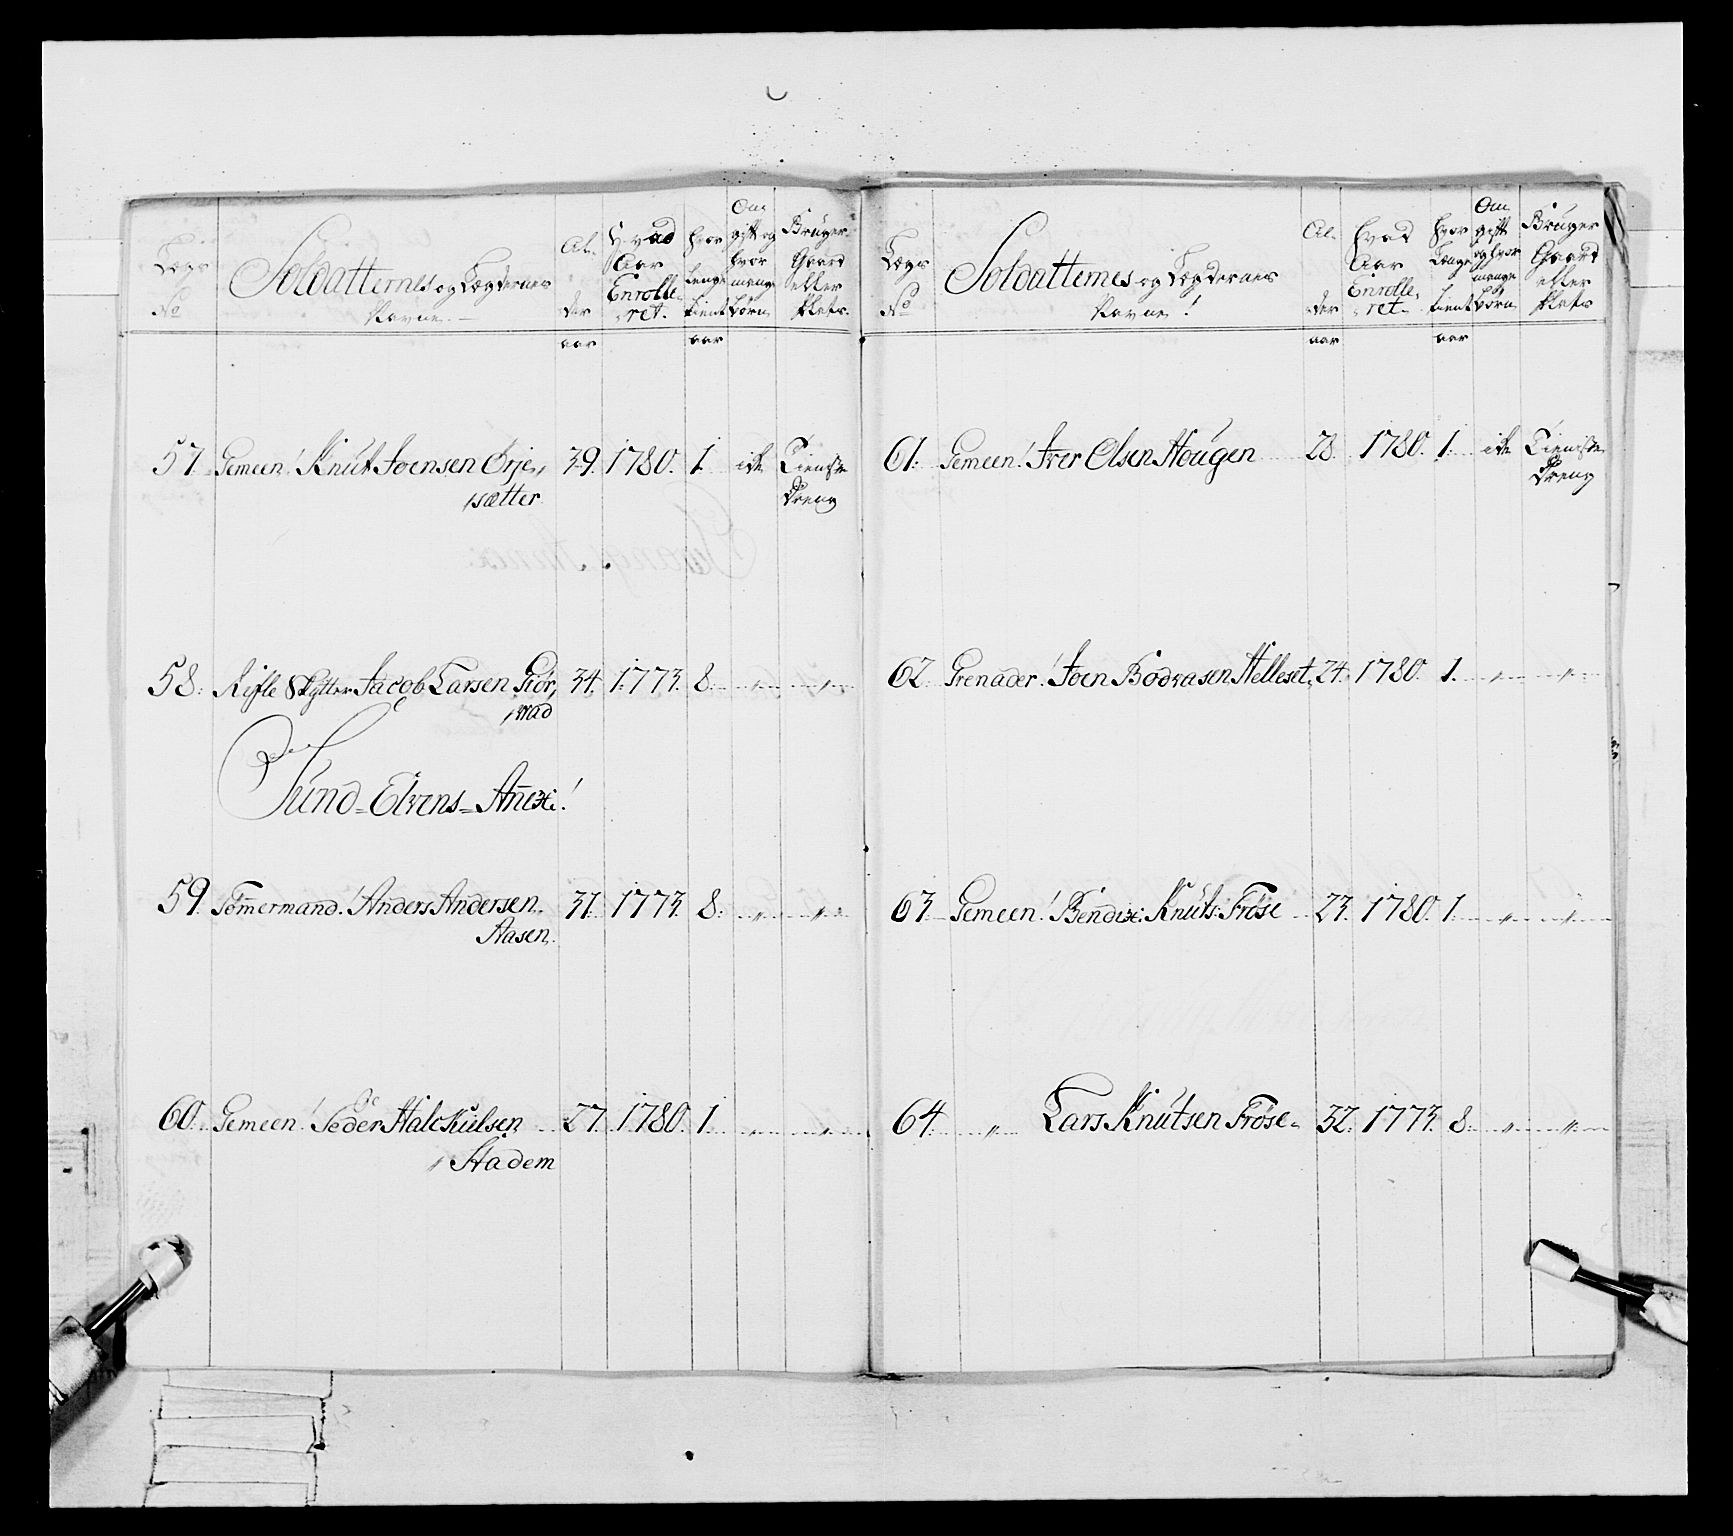 Lægs No
Soldatternes og Lægdernes Navne
Alder
Hvad Aar Enrolleret
hvor Længe tient
Om gift og hvor mange børn
Bruger Gaard eller Plads
aar
aar
57. Gemeen! Knut Joensen Ørje, 39. 1780. 1. ik Tieniste
sætter Dreng
58. Rifle Skytter Jacob Larsen Giør, 34. 1773. 8. " "
wad
Sund-Elvens-Anexi!
59. Tømermand. Anders Andersen 31. 1773. 8. " "
Aasen.
60. Gemeen! Peder Halckielsen 27. 1780. 1. " "
Aadem
Lægs No
Soldatternes og Lægdernes Navne!
Alder
Hvad Aar Enrolleret
hvor Længe tient
Om gift og hvor mange børn
Bruger Gaard eller Plads
aar
aar
61. Gemeen! Iver Olsen Hougen 28 1780. 1. ik Tieniste
Dreng
62. Grenader! Joen Bodvasen Helleset, 24. 1780. 1. " "
63. Gemeen! Bendix: Knuts: Frøse 23. 1780. 1. " "
64. " Lars Knutsen Frøse 32. 1773. 8. " "